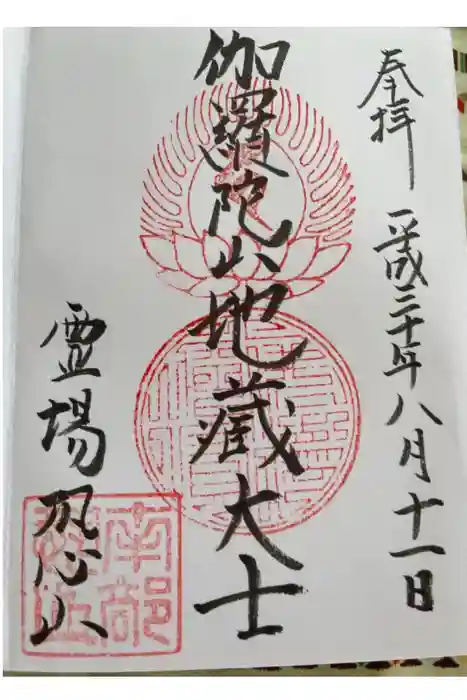 奉拝
平成三十年八月十一日
伽羅陀山地蔵大士
霊場恐山
南部